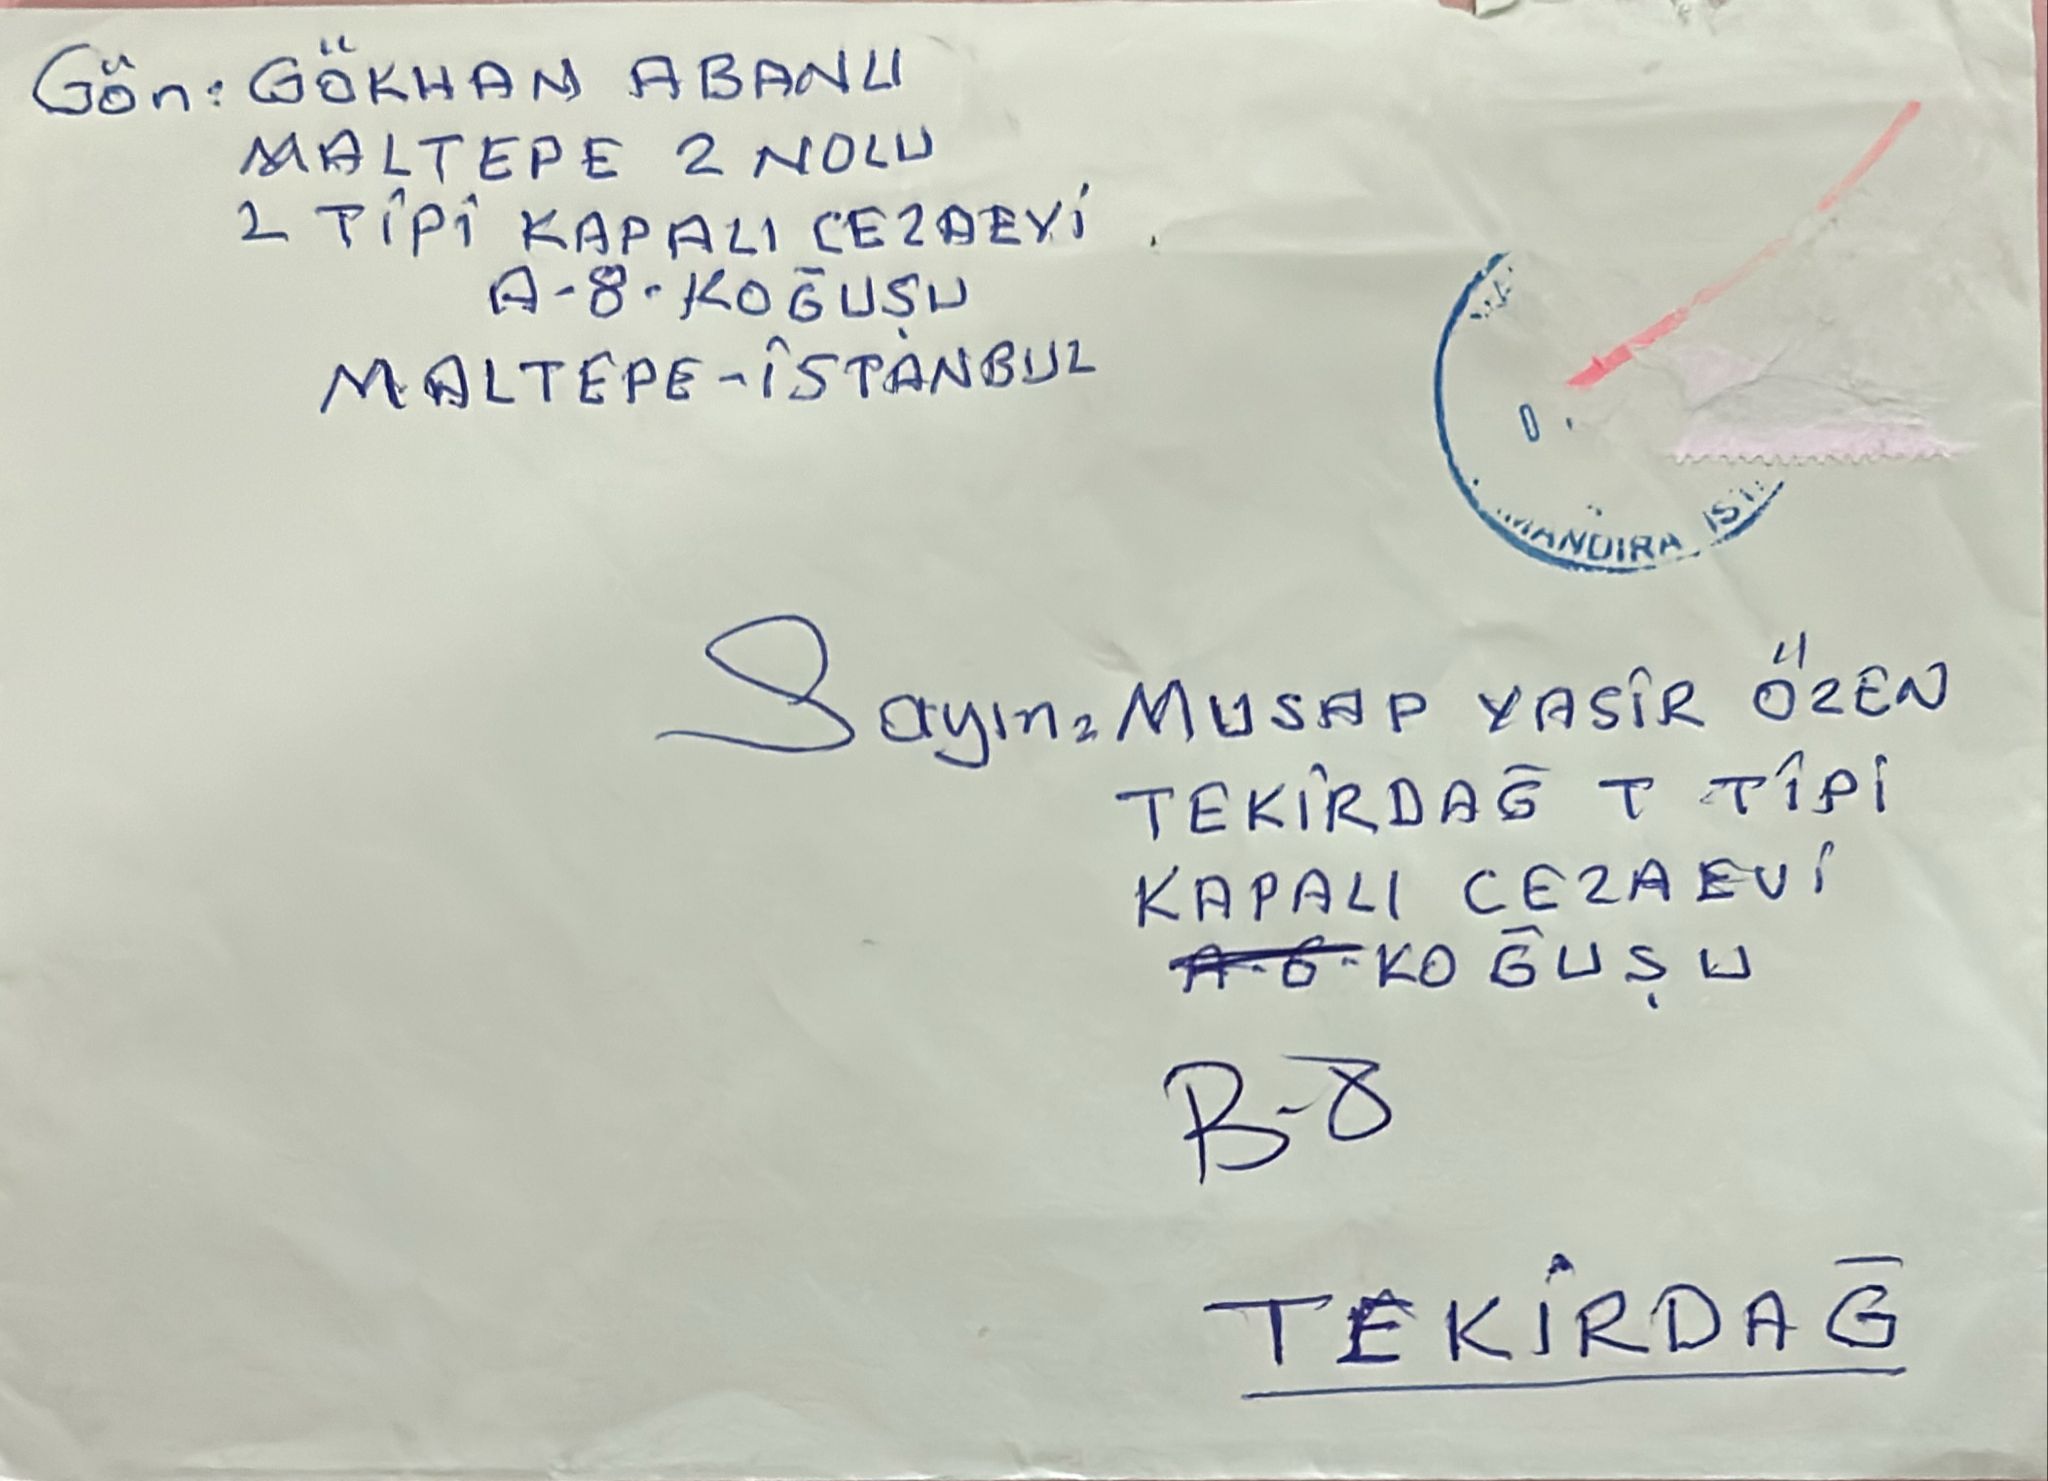 Gön: GÖKHAN ABANU
MALTEPE 2 NOLU
L TİPİ KAPALI CEZAEVİ
A-8-KOĞUŞU
MALTEPE-İSTANBUL
MANDIRA İST
Sayın: MUSAP YASİR ÖZEN
TEKİRDAĞ T TİPİ
KAPALI CEZAEVİ
A-6-KOĞUŞU
B-8
TEKİRDAĞ